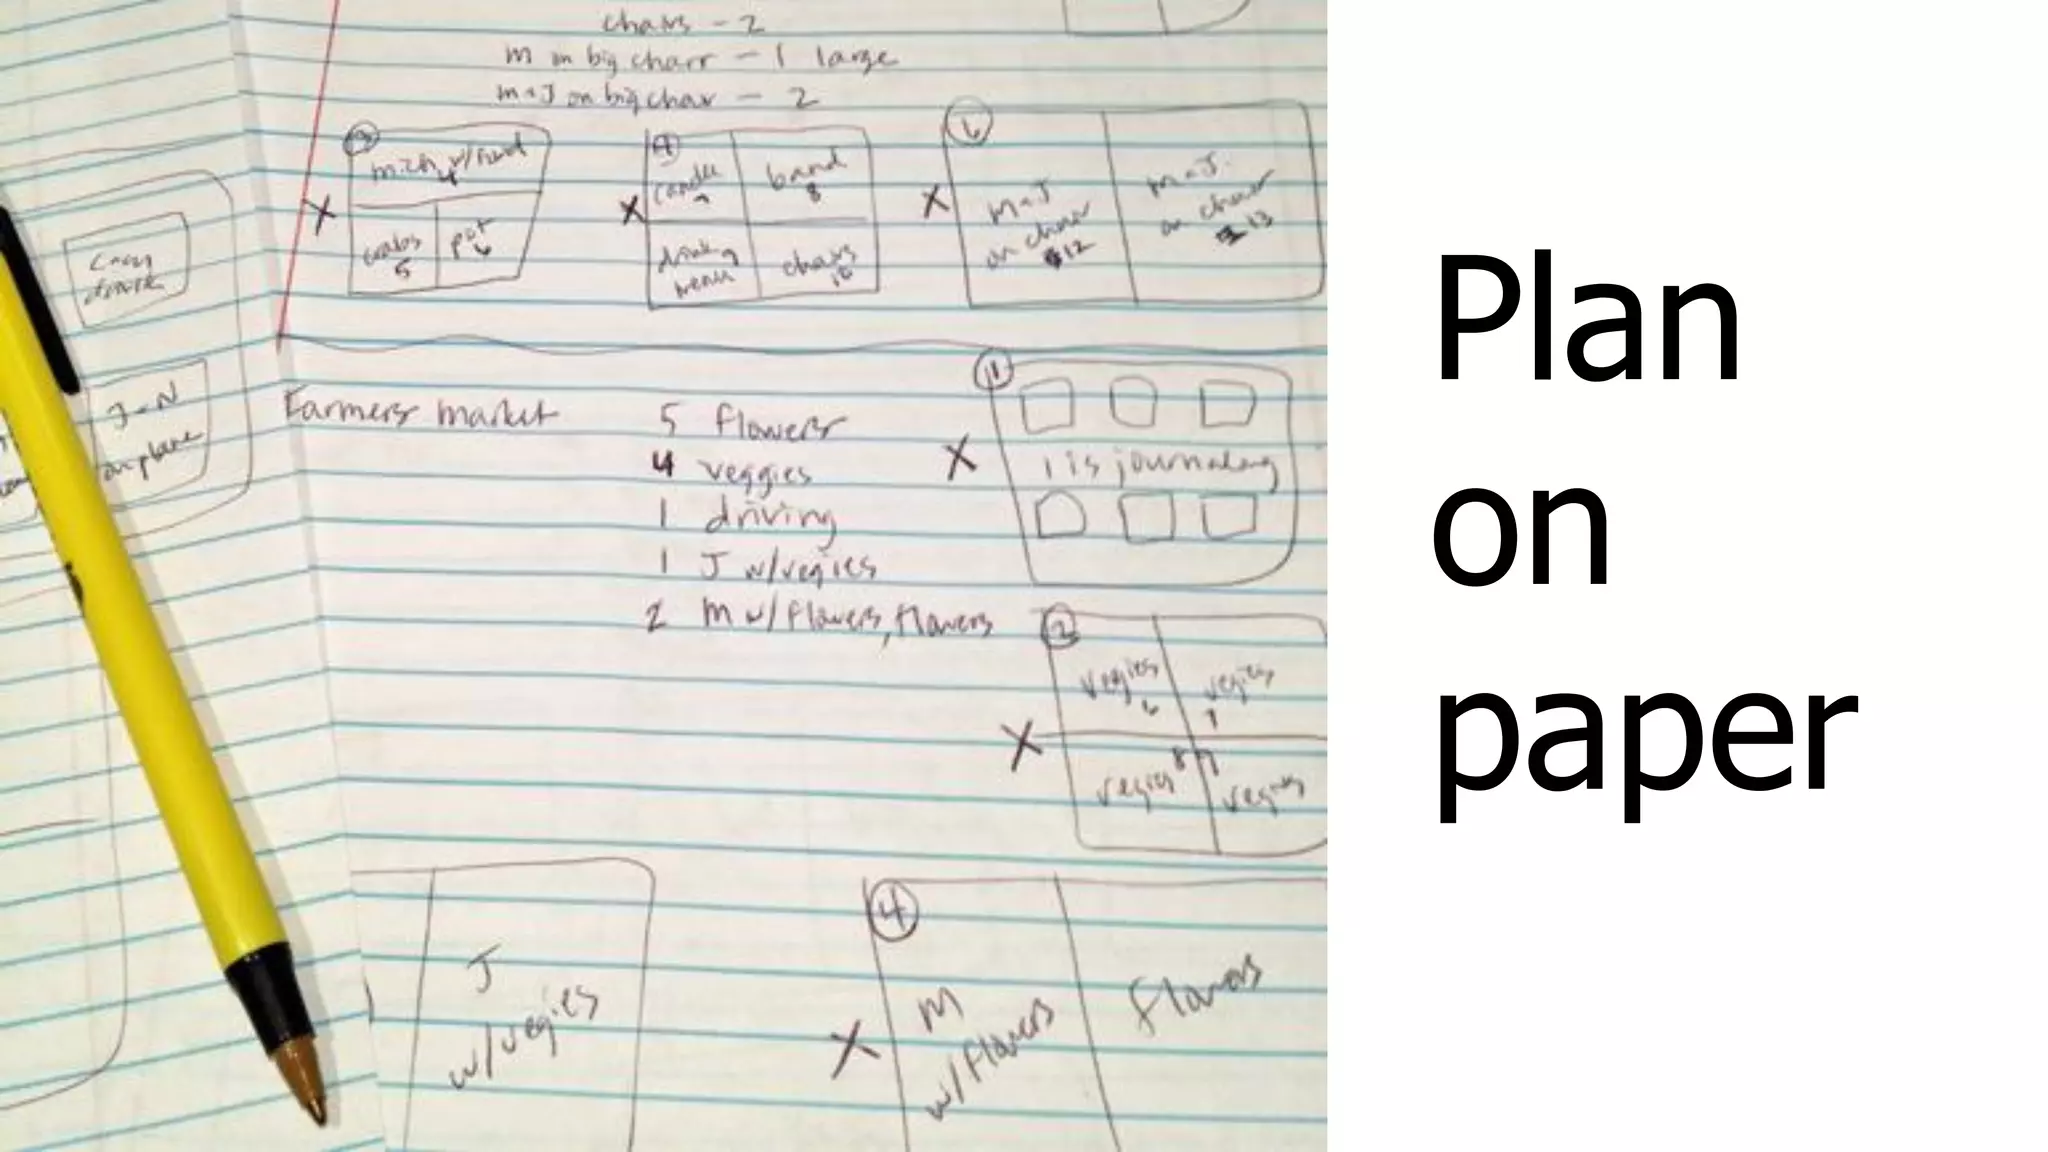 chairs - 2
m on big chair - 1 large
m + J on big chair - 2
3
mich w/food
4
crabs
5
pot
6
X
4
candle
7
band
8
drink
menu
9
chairs
10
X
6
m + J
on chair
12
m + J
on chair
13
X
carry
drink
J - N
on plane
Farmers market
5 flowers
4 veggies
1 driving
1 J w/vegies
2 M w/flowers, flowers
1
1 is journaling
X
2
vegies
6
vegies
7
vegies
8
vegies
9
X
J
w/vegies
4
M
w/flowers
flowers
X
Plan
on
paper